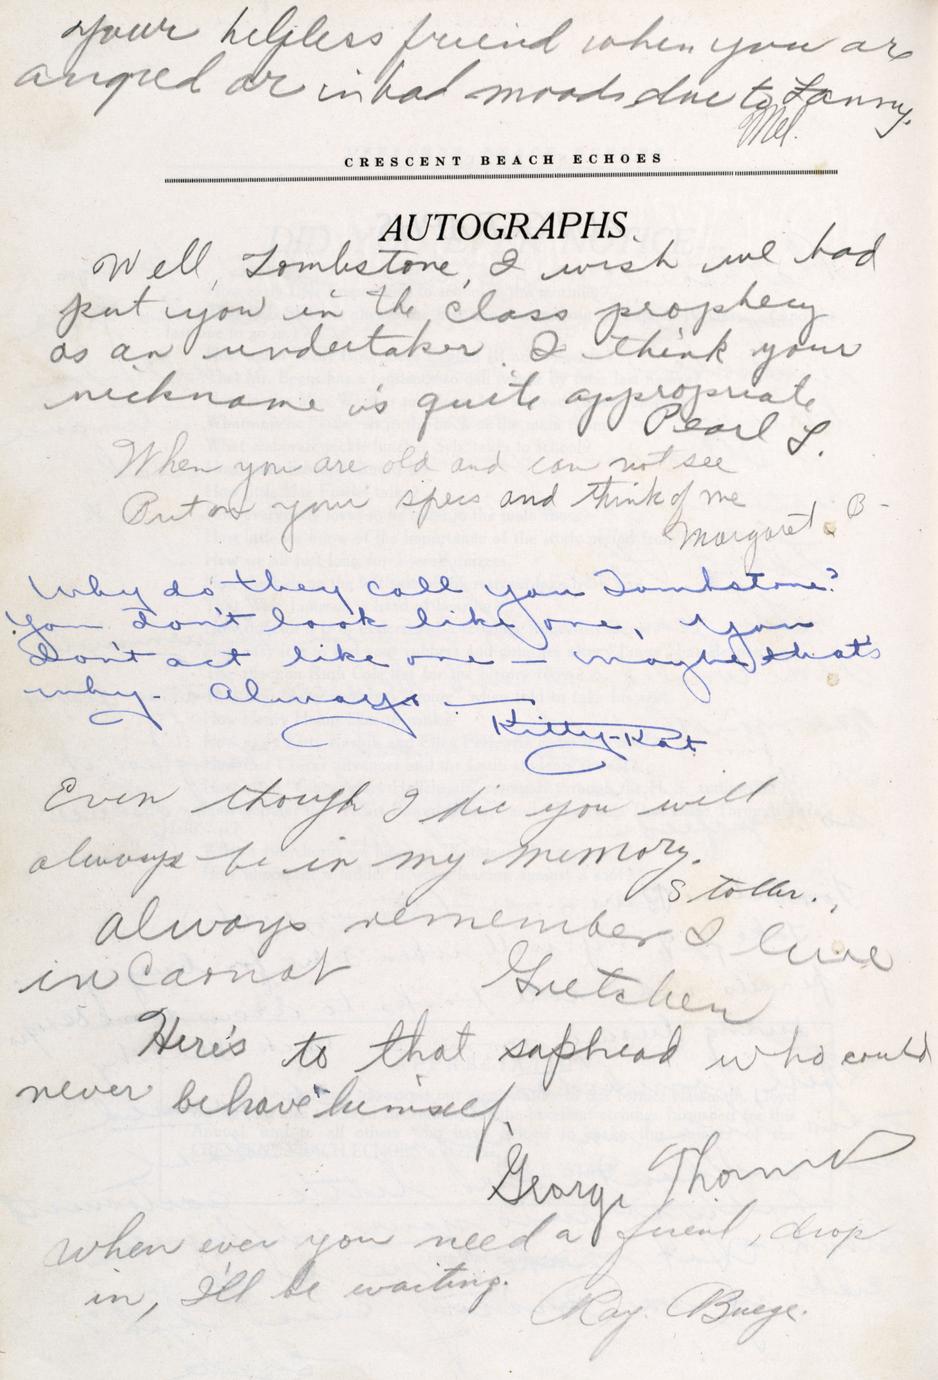 your helpless friend when you are
angred or in bad moods due to Fanny.
Mel.
CRESCENT BEACH ECHOES
AUTOGRAPHS
Well, Tombstone, I wish we had
put you in the class prophecy
as an undertaker I think your
nickname is quite appropriate
Pearl L.
When you are old and can not see
Put on your specs and think of me
Margaret B-
Why do they call you Tombstone?
You don't look like one, you
don't act like one - maybe that's
why. Always -
Kitty-Kat
Even though I die you will
always be in my memory.
Stoller.
Always remember I live
in Carnot Gretchen
Here's to that saphead who could
never behave himself,
George Thomas
When ever you need a friend, drop
in, I'll be waiting.
Ray. Buege.